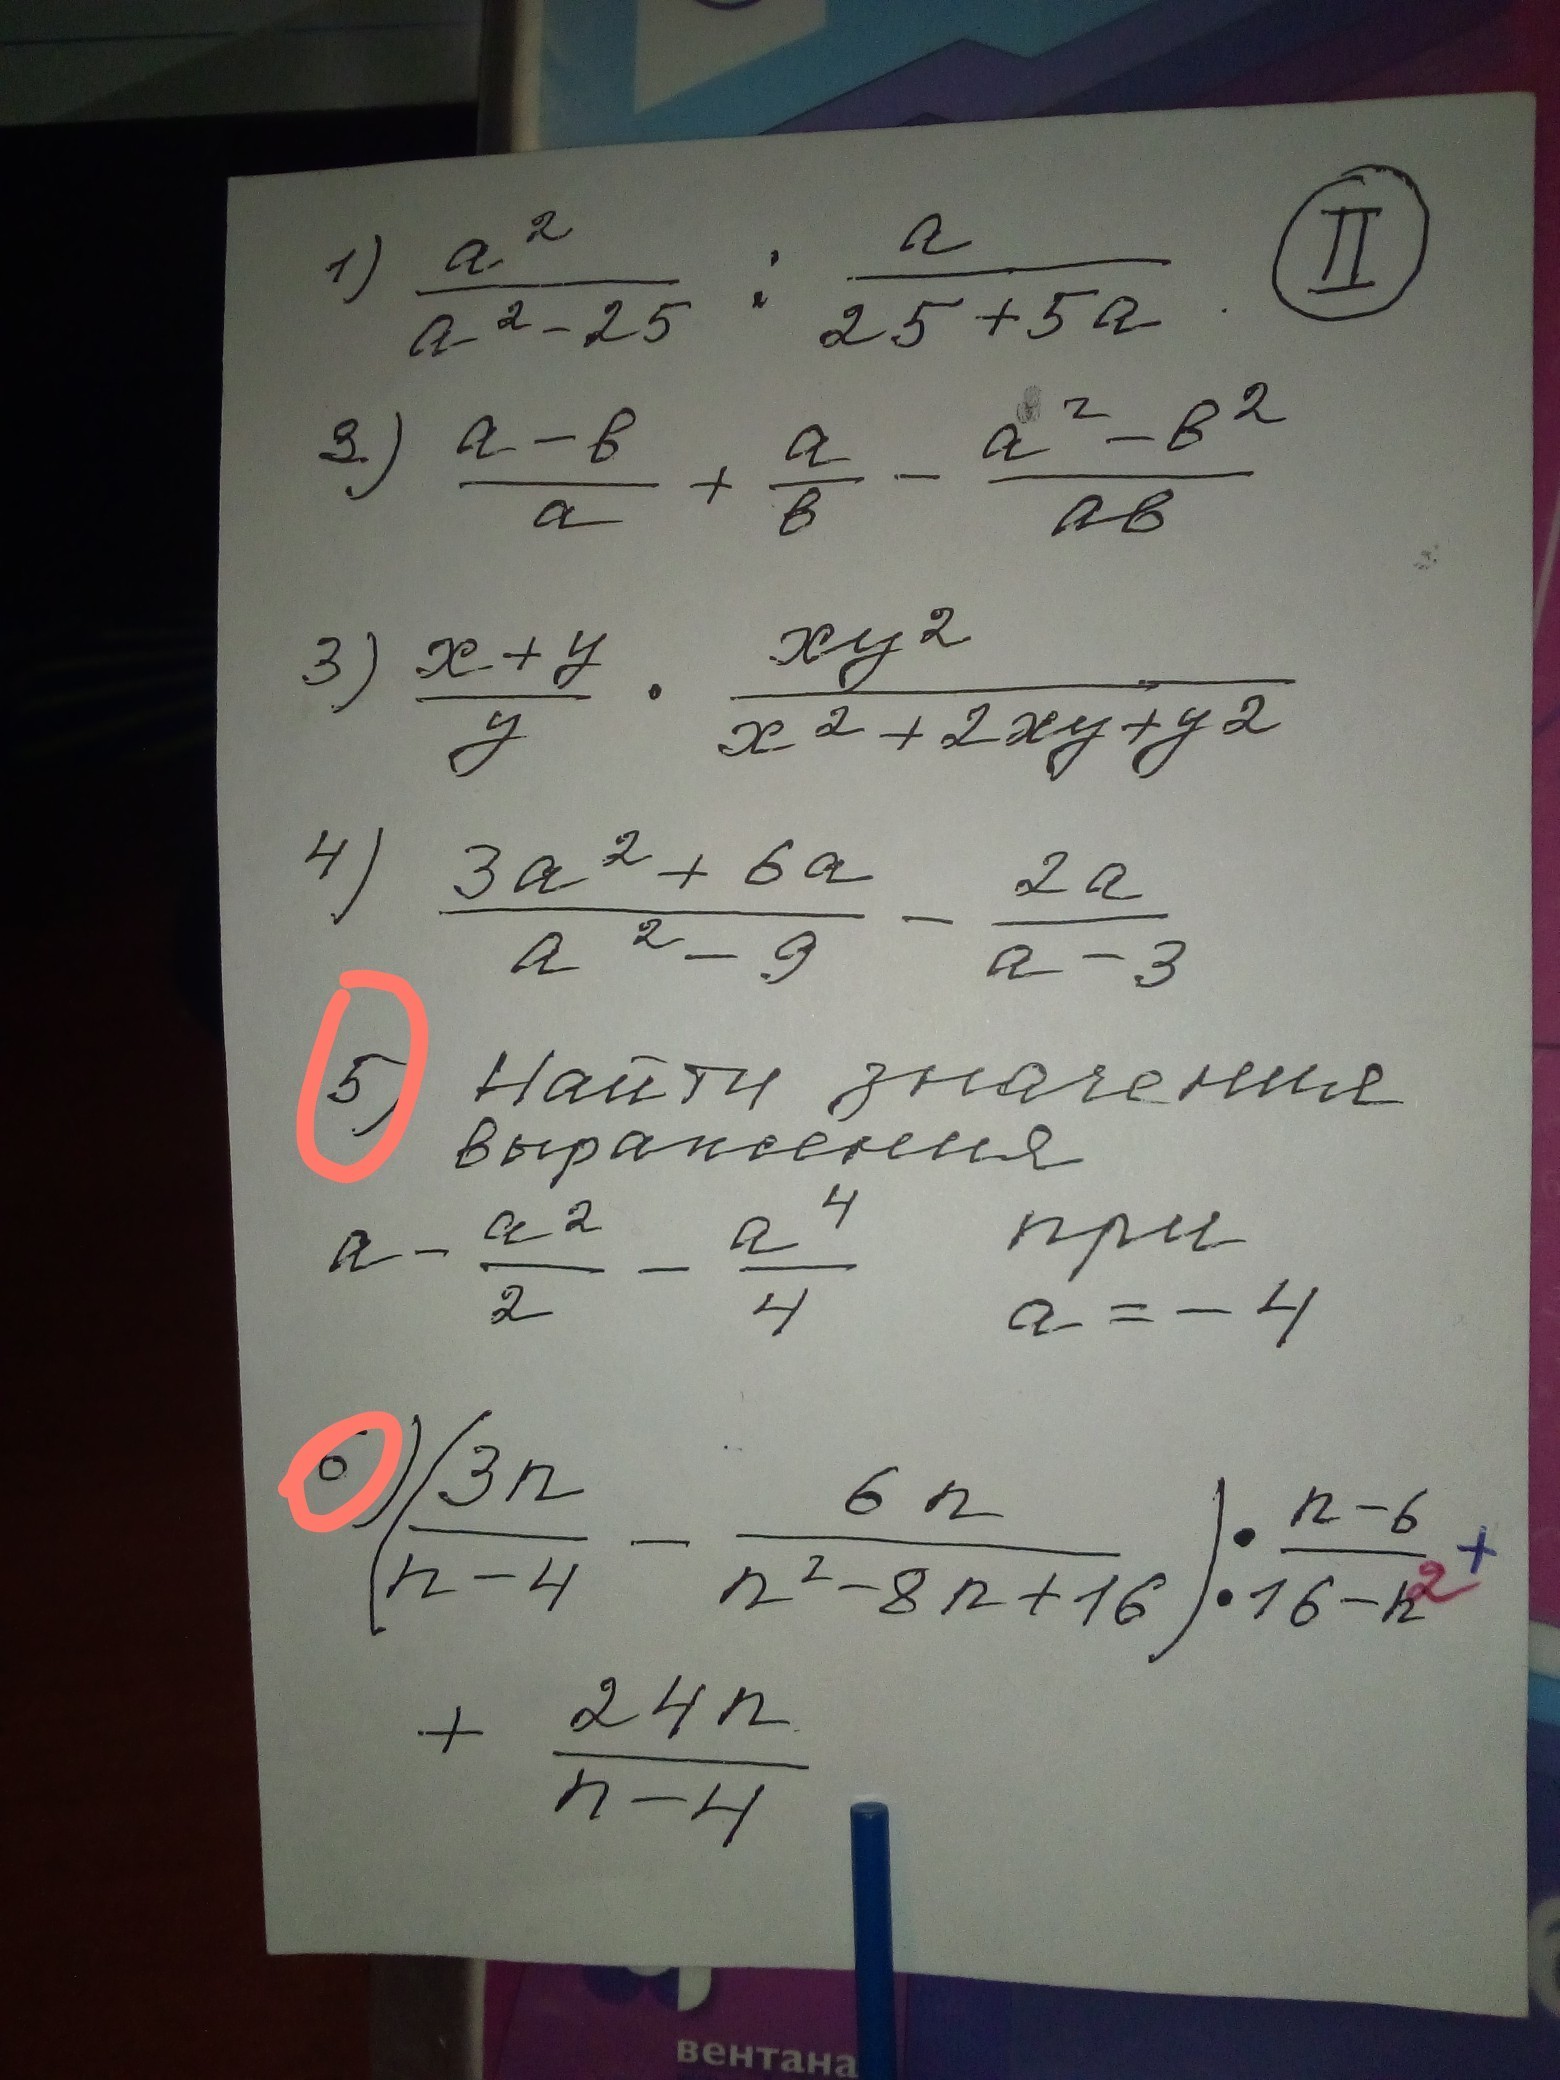 II
1) a²/(a²-25) : a/(25+5a).
2) (a-в)/a + a/в - (a²-в²)/(aв)
3) (x+y)/y · xy²/(x²+2xy+y2)
4) (3a²+6a)/(a²-9) - 2a/(a-3)
5) Найти значения
выражения
a - a²/2 - a⁴/4 при
a = -4
6) (3n/(n-4) - 6n/(n²-8n+16)) : (n-6)/(16-n²) +
+ 24n/(n-4)
вентана